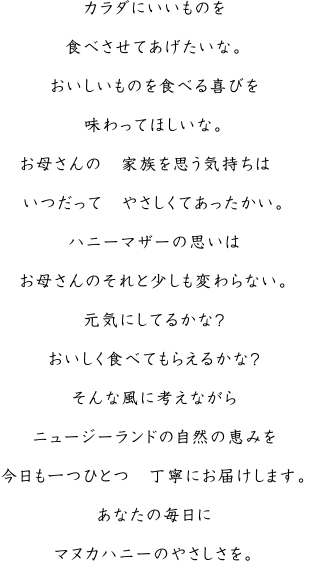 カラダにいいものを
食べさせてあげたいな。
おいしいものを食べる喜びを
味わってほしいな。
お母さんの　家族を思う気持ちは
いつだって　やさしくてあったかい。
ハニーマザーの思いは
お母さんのそれと少しも変わらない。
元気にしてるかな？
おいしく食べてもらえるかな？
そんな風に考えながら
ニュージーランドの自然の恵みを
今日も一つひとつ　丁寧にお届けします。
あなたの毎日に
マヌカハニーのやさしさを。